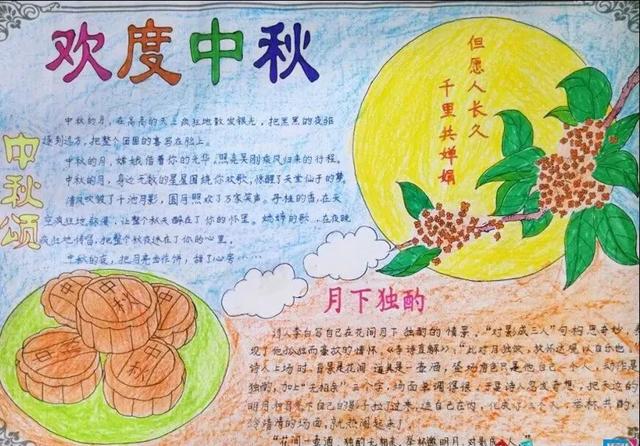 欢度中秋
但愿人长久
千里共婵娟
中秋颂
中秋的月,在高高的天上疯狂地散发银光,把黑黑的夜驱
逐到远方,把整个团圆的喜写在脸上。
中秋的月,嫦娥借着你的光华,照亮吴刚疾风归来的行程。
中秋的月,身边无数的星星围绕你欢歌,惊醒了天堂仙子的梦,
清风吹皱了千池月影,圆月照欢了万家笑声。丹桂的香,在天
空疯狂地弥漫,让整个秋天醉在了你的怀里。嫦娥的歌,在夜晚
疯狂地传唱,把整个秋夜迷在了你的心里。
中秋的夜,把月亮当作饼,甜了心房……
中秋
中秋
中
中
中秋
月下独酌
诗人李白写自己在花间月下独酌的情景,“对影成三人”句构思奇妙,
现了他孤独而豪放的情怀。《李诗直解》:“此对月独饮,放怀达观以自乐也
诗人上场时,背景是花间,道具是一壶酒,登场角色只是他自己一个人,动作是
独酌,加上“无相亲”三个字,场面单调得很。于是诗人忽发奇想,把天边的
明月和月光下自己的影子拉了过来,连自己在内,化成了三个人,举杯共酌,
冷清清的场面,就热闹起来了
“花间一壶酒,独酌无相亲。举杯邀明月,对影成